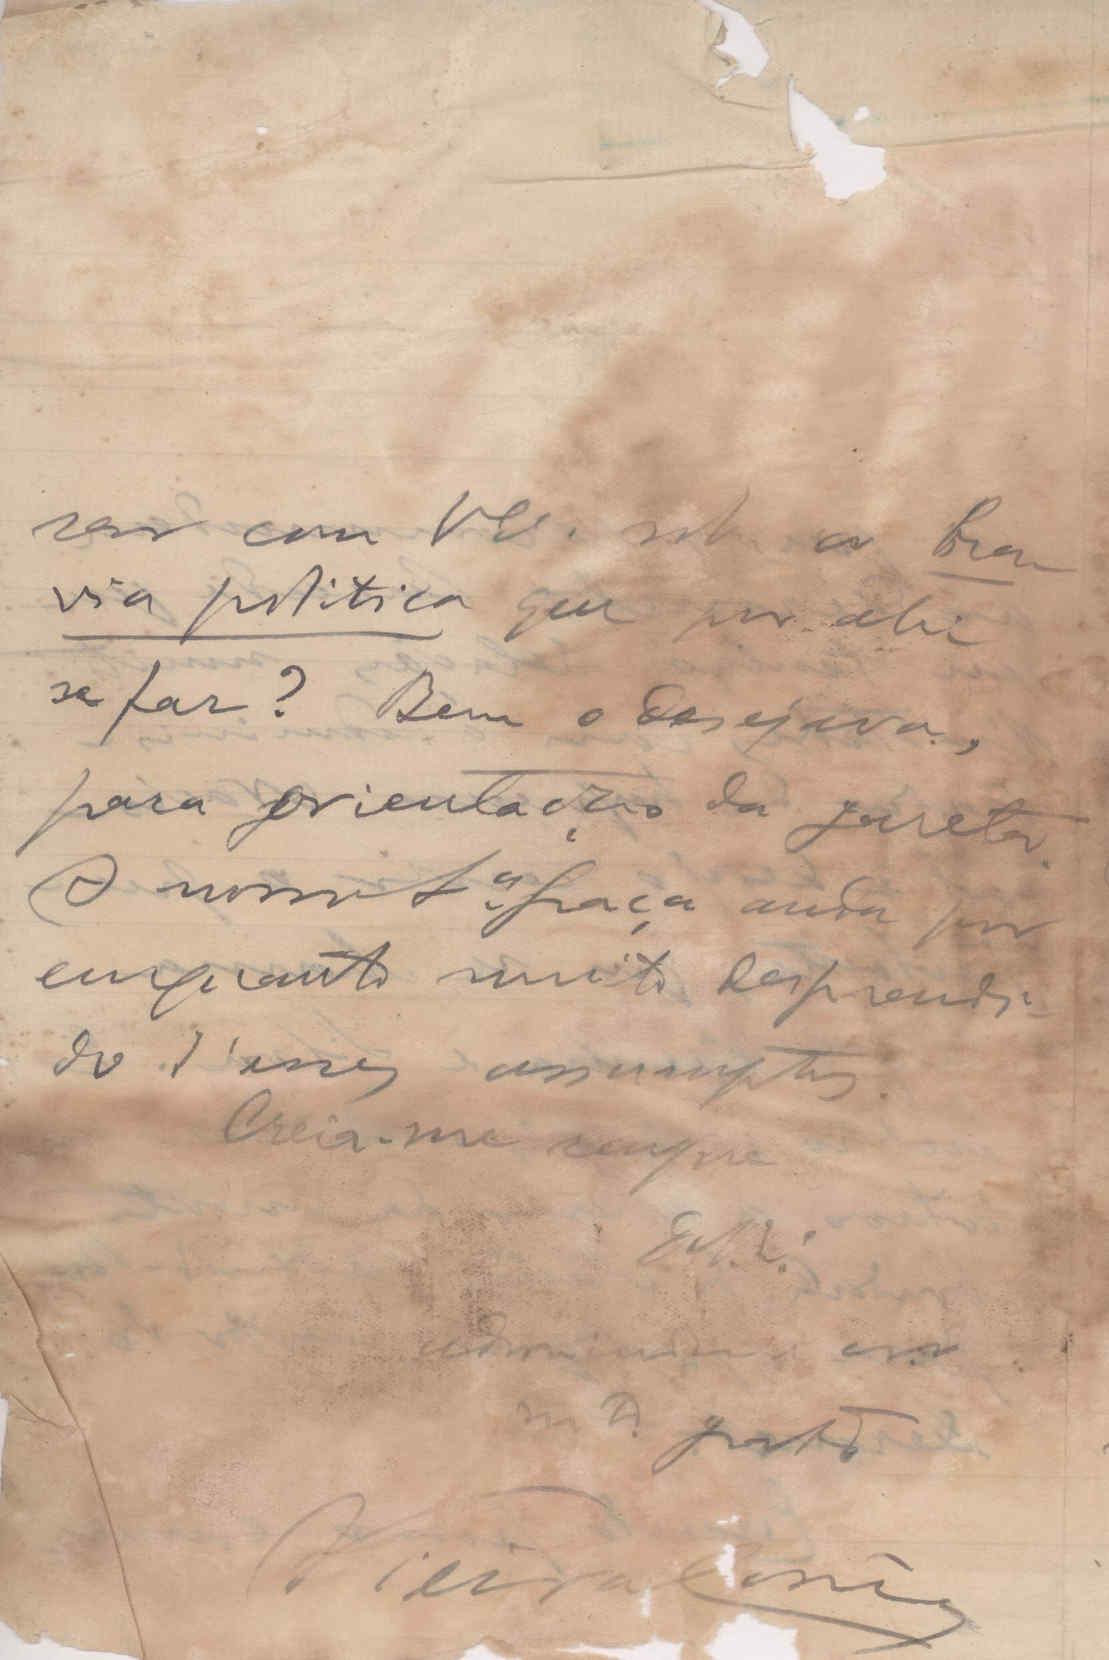 com VEx. sob a bra
via politica que por ahi
se faz? Bem o desejava,
para orientação da gazeta.
O nosso Graça anda por
emquanto muito desprendi
do d'esses assumptos.
Creia-me sempre
admirador
m.to grato
Vieira